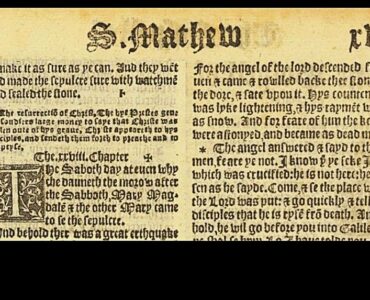 S. Mathew
make it as sure as ye can. And they wēt
nd made the sepulcre sure with watchmē
nd sealed the stone.
The resurrectiō of Christ. The hye Prestes geue
souders large money to saye that Christ was
len oute of hys graue. Christ apporeth to hys
ples, and sendeth them forth to preache and to
The .xxviii. Chapter
The Saboth day at euen whych
daunneth the morow after
the Sabboth, Mary Mag-
dale & the other Mary came
to se the sepulcre.
And behold ther was a great erthquake
For the angel of the lord descended f
uen & came & rowlled backe ther stone
the dore, & sate vpon it. Hys countena
was lyke lyghtening, & hys raymēt w
as snow. And for feare of him the ke
were astonyed, and became as dead m
* The angel answered & sayd to th
men feare ye not. I know y ye seke J
which was crucified: he is not here: he
sen as he sayde. Come, & se the place w
the Lord was put: & go quickly & tell
disciples that he is rysē frō death. And
hold, he wil go before you into Galile